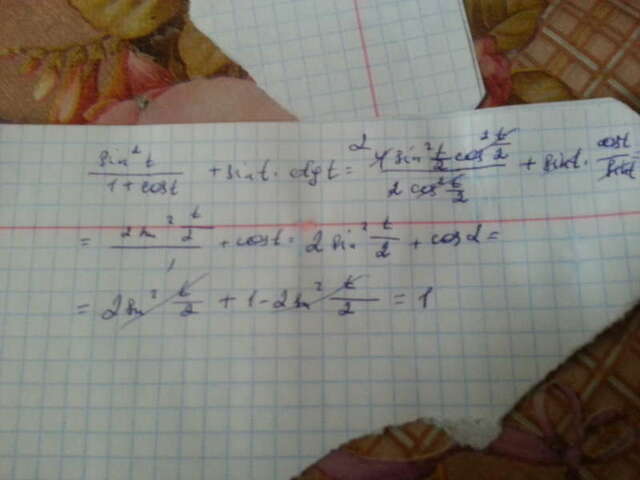 sin² t / 1 + cos t + sin t · ctg t = 4 sin² t/2 cos² t/2 / 2 cos² t/2 + sin t · cos t / sin t =
= 2 sin² t/2 / 1 + cos t = 2 sin² t/2 + cos t =
= 2 sin² t/2 + 1 - 2 sin² t/2 = 1